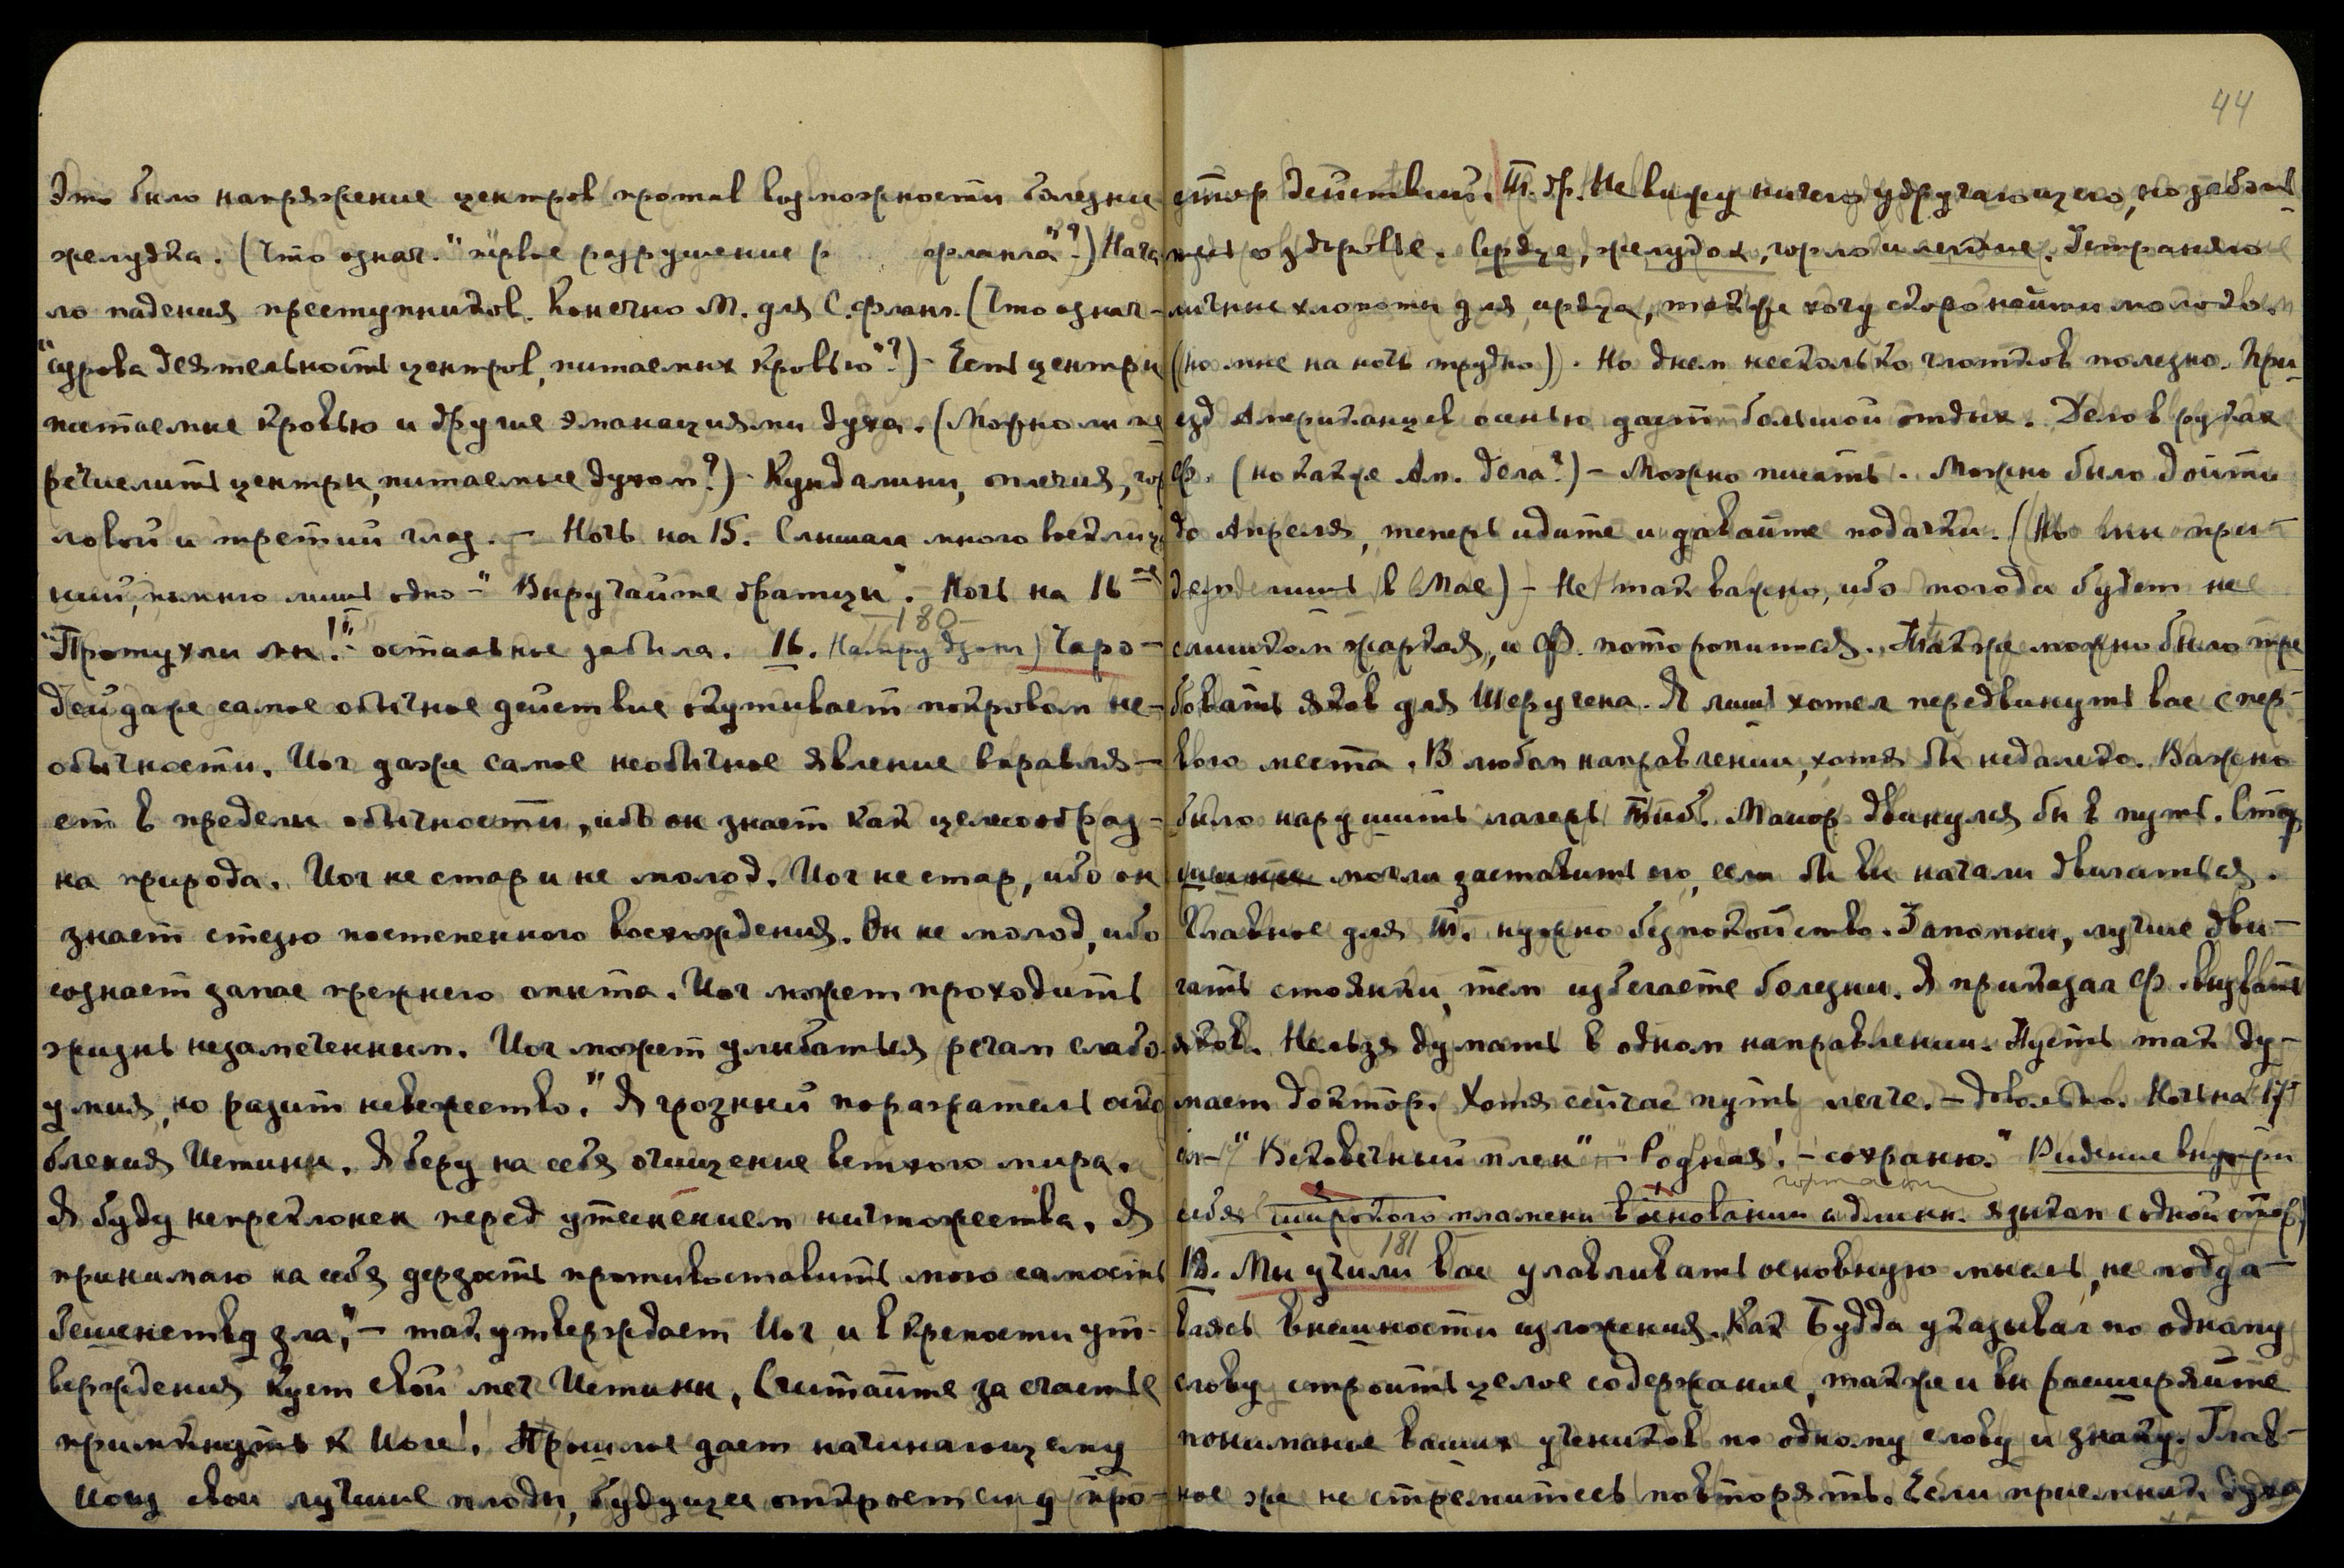 Это было напряжение центров против возможности болезни
желудка. (Что означ. "первое разрушение р фланга"?) Нача
ло падения преступников. Конечно М. для С. Фланг. (Что означ-
"сурова деятельность центров, питаемых кровью"?) - Есть центры
питаемые кровью и другие эманациями духа. (Можно ли пе
речислить центры, питаемые духом?) - Кундалини, оплечия, гор
ловой и третий глаз. - Ночь на 15. Слышала много восклица
ний, помню лишь одно - "Выручайте братцы". - Ночь на 16 ое
180
"Протухли мы!" - остальное забыла. 16. Чаро-
дей даже самое обычное действие окутывает покровом не-
обычности. Йог даже самое необычное явление вправля-
ет в пределы обычности, ибо он знает как целесообраз-
на природа. Йог не стар и не молод. Йог не стар, ибо он
знает стезю постепенного восхождения. Он не молод, ибо
сознает запас прежнего опыта. Йог может проходить
жизнь незамеченным. Йог может улыбаться речам слабо
умия, но разит невежество. "Я грозный поражатель оско
бления Истины. Я беру на себя очищение ветхого мира.
Я буду непреклонен перед утеснением ничтожества. Я
принимаю на себя дерзость противоставить мою самость
бешенству зла", - так утверждает Йог и в крепости ут-
верждения кует свой меч Истины. Считайте за счастье
примкнуть к Йоге! Прошлое дает начинающему
Йогу свои лучшие плоды, будущее откроет ему про-
44
стор действий. Т. др. Не вижу ничего удручающего, но заботь
тесь о здоровье. Сердце, желудок, горло и легкие. Устраняю
личные хлопоты для сердца, также хочу скоро найти молоко.
(но мне на ночь трудно). Но днем несколько глотков полезно. При
езд Американцев осенью даст большой отдых. Дело в руках
Ф. (но как же Ам. дела?) - Можно писать. Можно было дойти
до Апреля, теперь идите и давайте подачки. (Но вы при-
дете лишь в Мае) - Не так важно, ибо погода будет не
слишком жаркая, и Ф. поторопиться. Также можно было тре
бовать яков для Шеругена. Я лишь хотел передвинуть вас с пер-
вого места. В любом направлении, хотя бы недалеко. Важно
было нарушить лагерь Тиб. Майор двинулся бы в путь. Стар
шины могли заставить его, если бы вы начали двигаться.
Главное для Т. нужно безпокойство. Запомни, лучше дви-
гать стоянки, тем избегаете болезни. Я приказал Ф. вызвать
яков. Нельзя думать в одном направлении. Пусть так ду-
мает доктор. Хотя сейчас путь легче. - довольно. Ночь на 17
ое - "Вековечный плен" - "Родная! - сохраню." Видение внутри
гортани
себя широкого пламени в основании и длинн. языком с одной стор.
181
18. Мы учили вас улавливать основную мысль, не подда-
ваясь внешности изложения. Как Будда указывал по одному
слову строить целое содержание, так же и вы расширяйте
понимание ваших учеников по одному слову и знаку. Глав-
ное же не стремитесь повторять. Если приемник духа